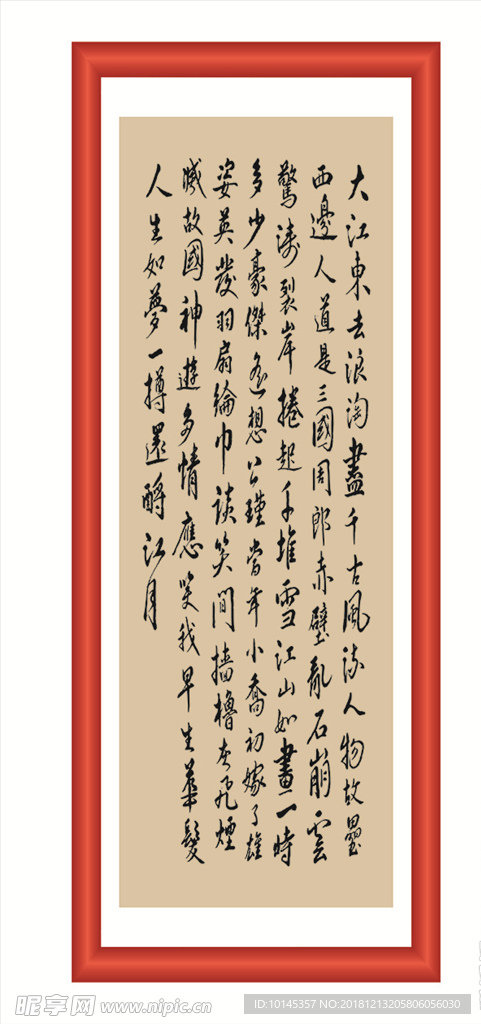 大江東去浪淘盡千古風流人物故壘
西邊人道是三國周郎赤壁亂石崩雲
驚濤裂岸捲起千堆雪江山如畫一時
多少豪傑遙想公瑾當年小喬初嫁了雄
姿英發羽扇綸巾談笑間墻櫓灰飛煙
滅故國神遊多情應笑我早生華髮
人生如夢一撙還酹江月
昵享网 www.nipic.cn
ID:10145357 NO:20181213205806056030